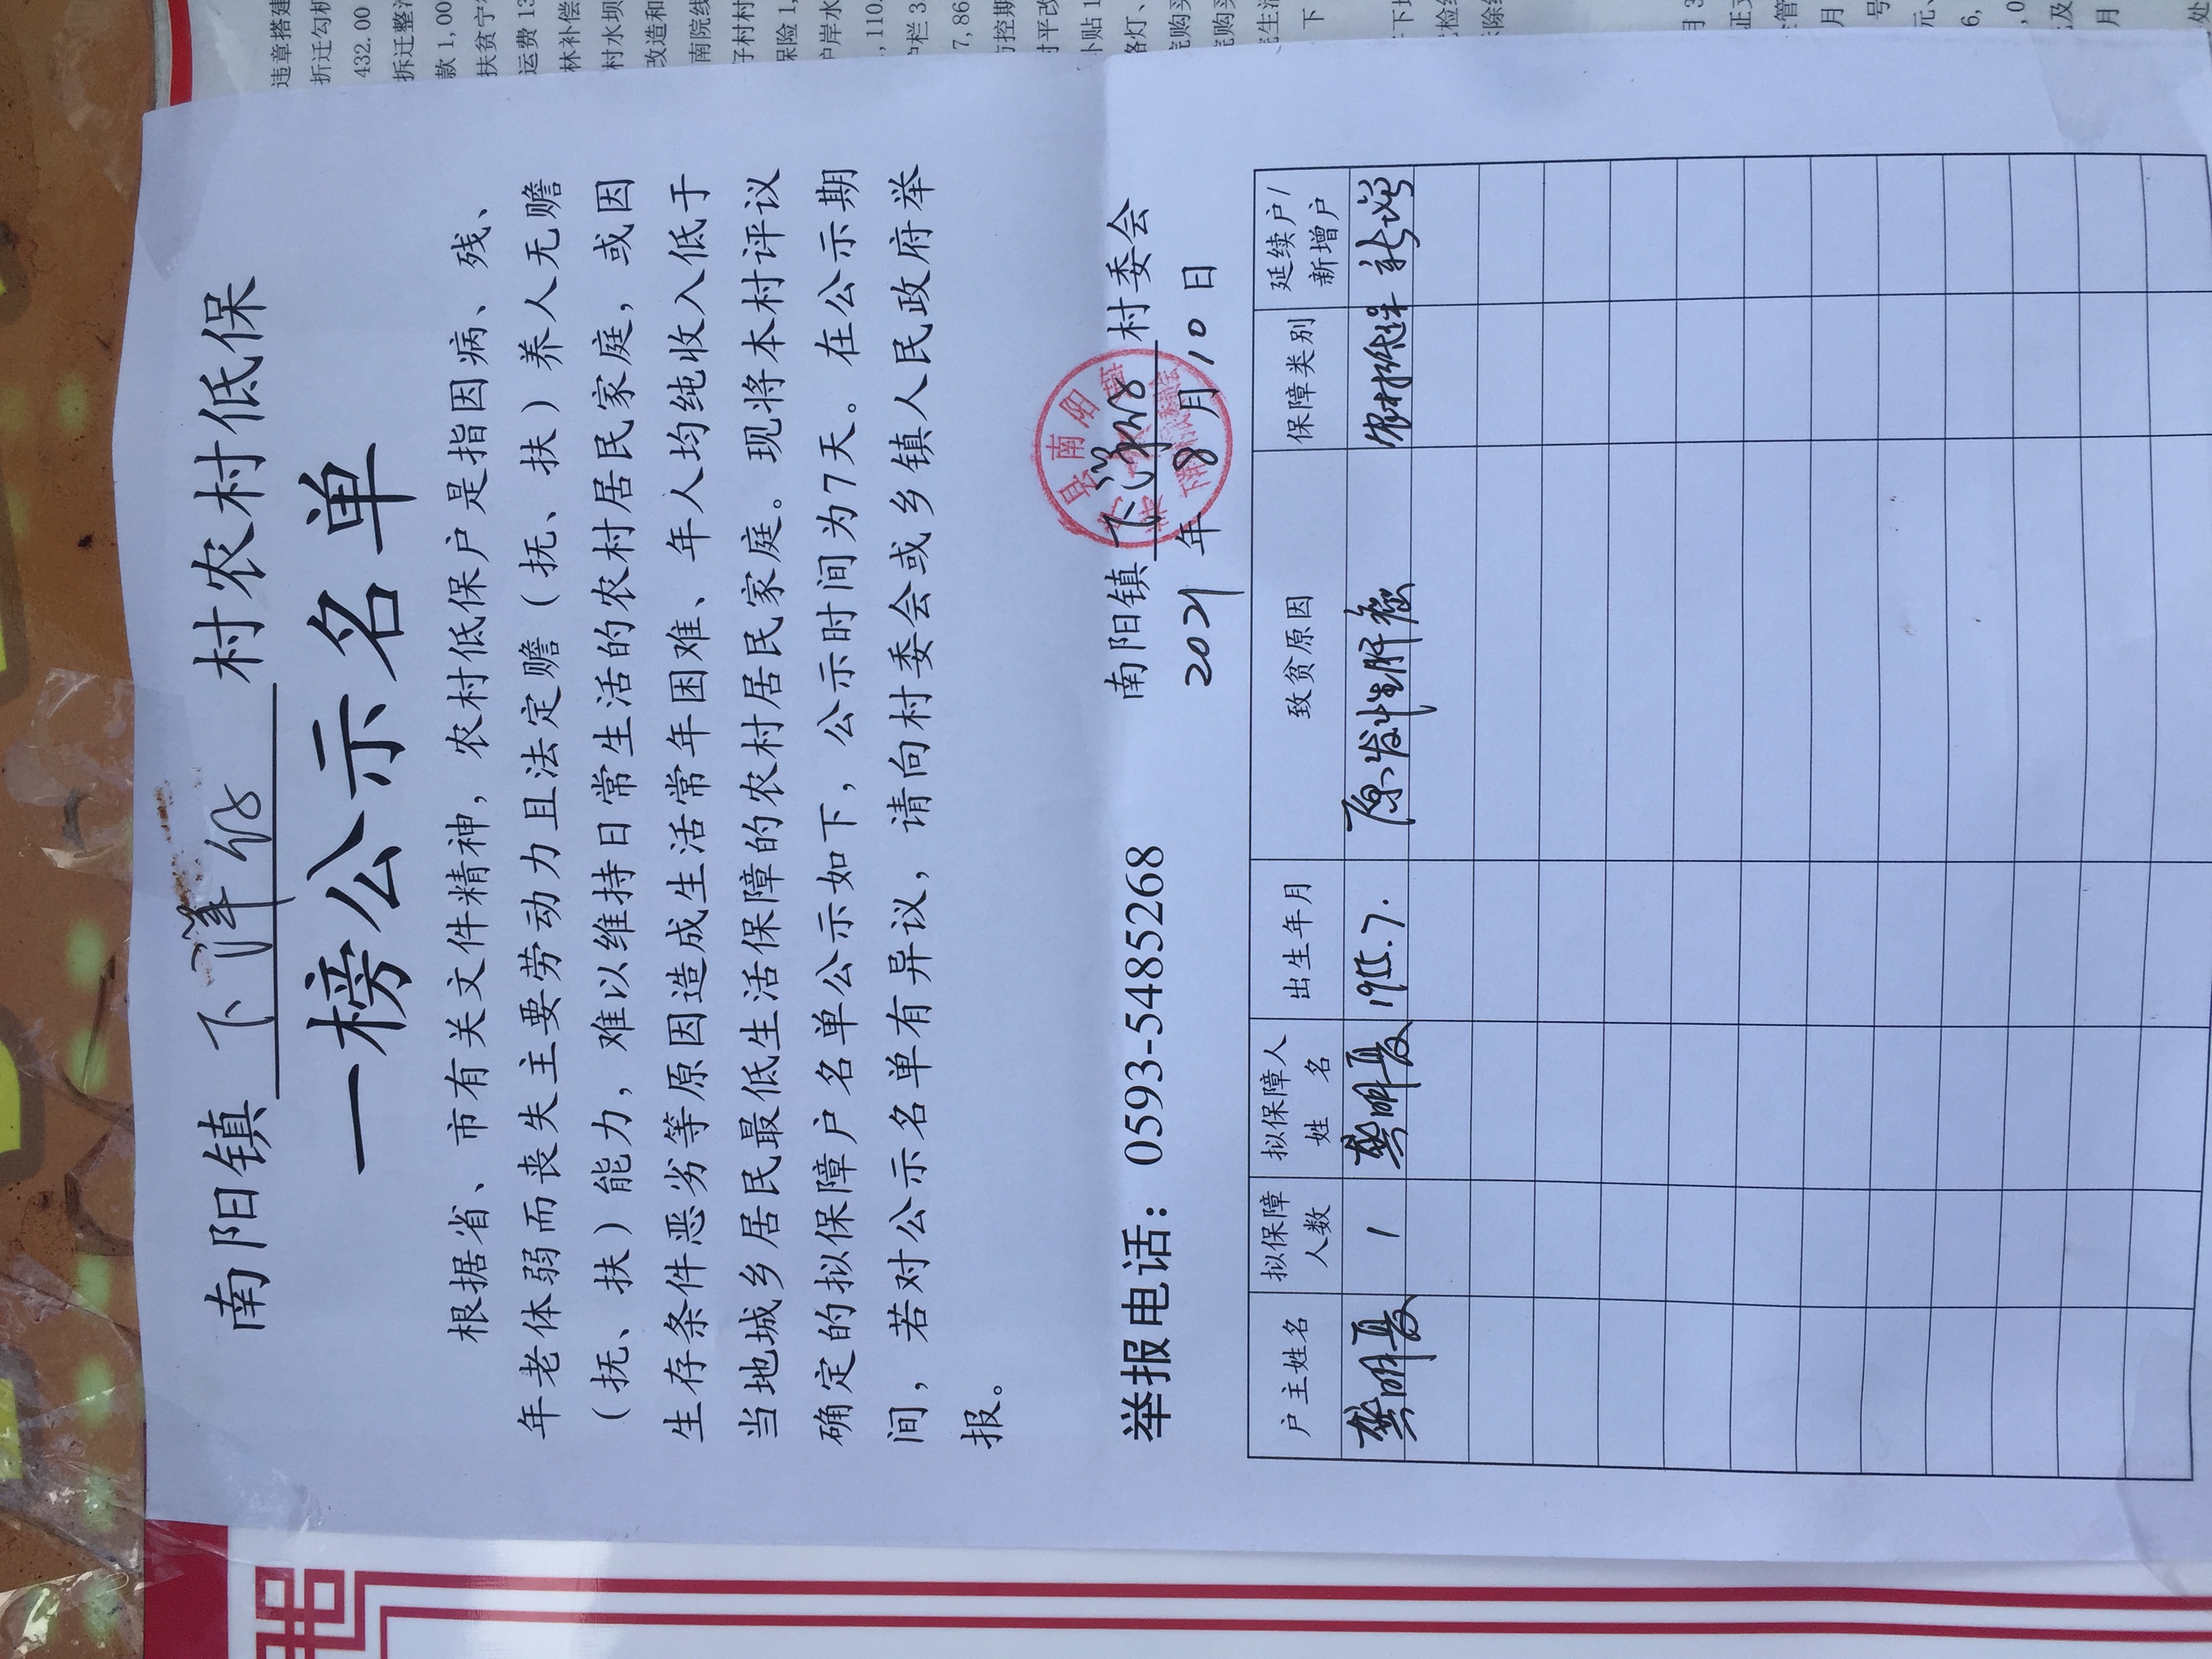 南阳镇下洋仔村农村低保
一榜公示名单
根据省、市有关文件精神，农村低保户是指因病、残、
年老体弱而丧失主要劳动力且法定赡（抚、扶）养人无赡
（抚、扶）能力，难以维持日常生活的农村居民家庭，或因
生存条件恶劣等原因造成生活常年困难、年人均纯收入低于
当地城乡居民最低生活保障的农村居民家庭。现将本村评议
确定的拟保障户名单公示如下，公示时间为7天。在公示期
间，若对公示名单有异议，请向村委会或乡镇人民政府举
报。
举报电话：0593-5485268 南阳镇下洋仔村委会
2021年8月10日
户主姓名 拟保障人数 拟保障人姓名 出生年月 致贫原因 保障类别 延续户/新增户
龚明夏 1 龚明夏 1955.7. 原发性肝癌 农村低保 新增